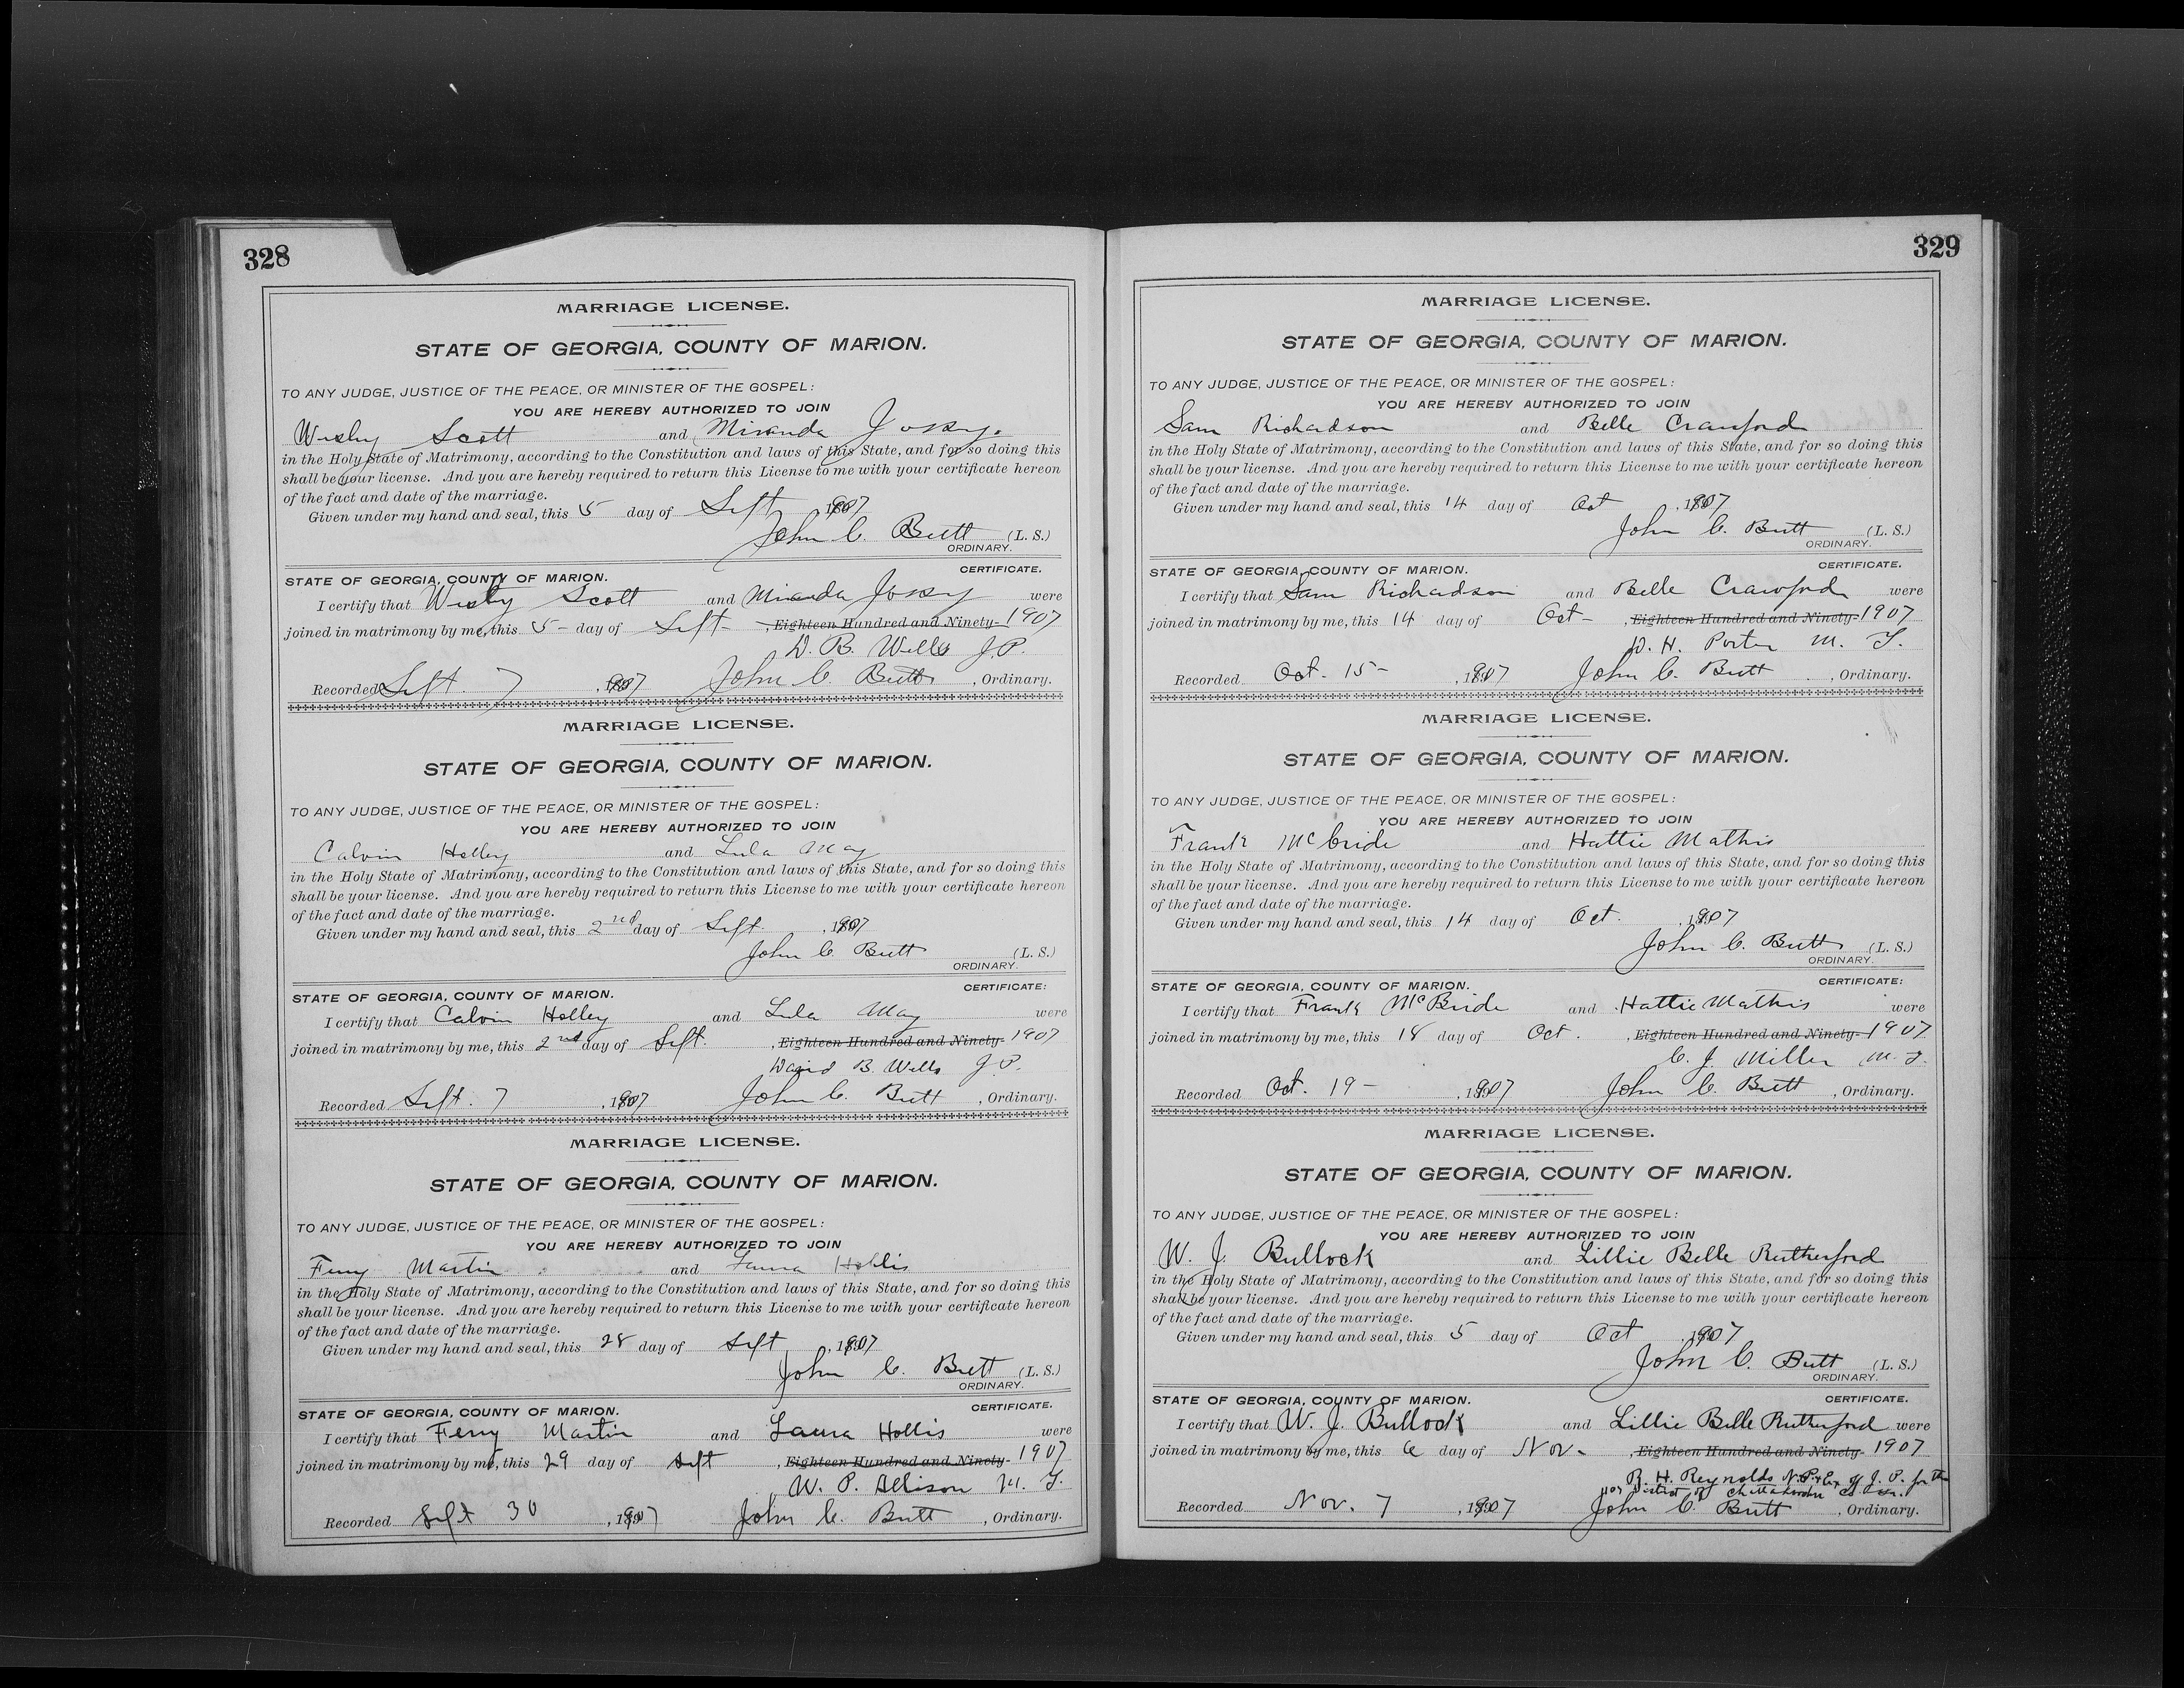 328
MARRIAGE LICENSE.
STATE OF GEORGIA, COUNTY OF MARION.
TO ANY JUDGE, JUSTICE OF THE PEACE, OR MINISTER OF THE GOSPEL:
YOU ARE HEREBY AUTHORIZED TO JOIN
Wesby Scott and Miranda Jossy.
in the Holy State of Matrimony, according to the Constitution and laws of this State, and for so doing this
shall be your license. And you are hereby required to return this License to me with your certificate hereon
of the fact and date of the marriage.
Given under my hand and seal, this 5 day of Sept, 1907
John C. Butt (L. S.)
ORDINARY.
CERTIFICATE.
STATE OF GEORGIA, COUNTY OF MARION.
I certify that Wesby Scott and Miranda Jossy were
joined in matrimony by me, this 5- day of Sept-, Eighteen Hundred and Ninety- 1907
D. B. Wells J.P.
Recorded Sept. 7, 1907 John C. Butt, Ordinary.
MARRIAGE LICENSE.
STATE OF GEORGIA, COUNTY OF MARION.
TO ANY JUDGE, JUSTICE OF THE PEACE, OR MINISTER OF THE GOSPEL:
YOU ARE HEREBY AUTHORIZED TO JOIN
Calvin Holley and Lula May
in the Holy State of Matrimony, according to the Constitution and laws of this State, and for so doing this
shall be your license. And you are hereby required to return this License to me with your certificate hereon
of the fact and date of the marriage.
Given under my hand and seal, this 2nd day of Sept., 1907
John C. Butt (L. S.)
ORDINARY.
CERTIFICATE:
STATE OF GEORGIA, COUNTY OF MARION.
I certify that Calvin Holley and Lula May were
joined in matrimony by me, this 2nd day of Sept., Eighteen Hundred and Ninety- 1907
David B. Wells J.P.
Recorded Sept. 7, 1907 John C. Butt, Ordinary.
MARRIAGE LICENSE.
STATE OF GEORGIA, COUNTY OF MARION.
TO ANY JUDGE, JUSTICE OF THE PEACE, OR MINISTER OF THE GOSPEL:
YOU ARE HEREBY AUTHORIZED TO JOIN
Ferry Martin and Laura Hollis
in the Holy State of Matrimony, according to the Constitution and laws of this State, and for so doing this
shall be your license. And you are hereby required to return this License to me with your certificate hereon
of the fact and date of the marriage.
Given under my hand and seal, this 28 day of Sept, 1907
John C. Butt (L. S.)
ORDINARY.
CERTIFICATE.
STATE OF GEORGIA, COUNTY OF MARION.
I certify that Ferry Martin and Laura Hollis were
joined in matrimony by me, this 29 day of Sept, Eighteen Hundred and Ninety- 1907
W. P. Allison M. G.
Recorded Sept 30, 1907 John C. Butt, Ordinary.
329
MARRIAGE LICENSE.
STATE OF GEORGIA, COUNTY OF MARION.
TO ANY JUDGE, JUSTICE OF THE PEACE, OR MINISTER OF THE GOSPEL:
YOU ARE HEREBY AUTHORIZED TO JOIN
Sam Richardson and Belle Crawford
in the Holy State of Matrimony, according to the Constitution and laws of this State, and for so doing this
shall be your license. And you are hereby required to return this License to me with your certificate hereon
of the fact and date of the marriage.
Given under my hand and seal, this 14 day of Oct, 1907
John C. Butt (L. S.)
ORDINARY.
CERTIFICATE.
STATE OF GEORGIA, COUNTY OF MARION.
I certify that Sam Richardson and Belle Crawford were
joined in matrimony by me, this 14 day of Oct-, Eighteen Hundred and Ninety- 1907
W. H. Porter M. G.
Recorded Oct. 15-, 1907 John C. Butt, Ordinary.
MARRIAGE LICENSE.
STATE OF GEORGIA, COUNTY OF MARION.
TO ANY JUDGE, JUSTICE OF THE PEACE, OR MINISTER OF THE GOSPEL:
YOU ARE HEREBY AUTHORIZED TO JOIN
Frank McBride and Hattie Mathis
in the Holy State of Matrimony, according to the Constitution and laws of this State, and for so doing this
shall be your license. And you are hereby required to return this License to me with your certificate hereon
of the fact and date of the marriage.
Given under my hand and seal, this 14 day of Oct., 1907
John C. Butt (L. S.)
ORDINARY.
CERTIFICATE:
STATE OF GEORGIA, COUNTY OF MARION.
I certify that Frank McBride and Hattie Mathis were
joined in matrimony by me, this 18 day of Oct., Eighteen Hundred and Ninety- 1907
C. J. Miller M. G.
Recorded Oct. 19-, 1907 John C. Butt, Ordinary.
MARRIAGE LICENSE.
STATE OF GEORGIA, COUNTY OF MARION.
TO ANY JUDGE, JUSTICE OF THE PEACE, OR MINISTER OF THE GOSPEL:
YOU ARE HEREBY AUTHORIZED TO JOIN
W. J. Bullock and Lillie Belle Rutherford
in the Holy State of Matrimony, according to the Constitution and laws of this State, and for so doing this
shall be your license. And you are hereby required to return this License to me with your certificate hereon
of the fact and date of the marriage.
Given under my hand and seal, this 5 day of Oct, 1907
John C. Butt (L. S.)
ORDINARY.
CERTIFICATE.
STATE OF GEORGIA, COUNTY OF MARION.
I certify that W. J. Bullock and Lillie Belle Rutherford were
joined in matrimony by me, this 6 day of Nov-, Eighteen Hundred and Ninety- 1907
R. H. Reynolds N.P. & Ex of J. P. for the
District of Chattahoochee
Recorded Nov. 7, 1907 John C. Butt, Ordinary.